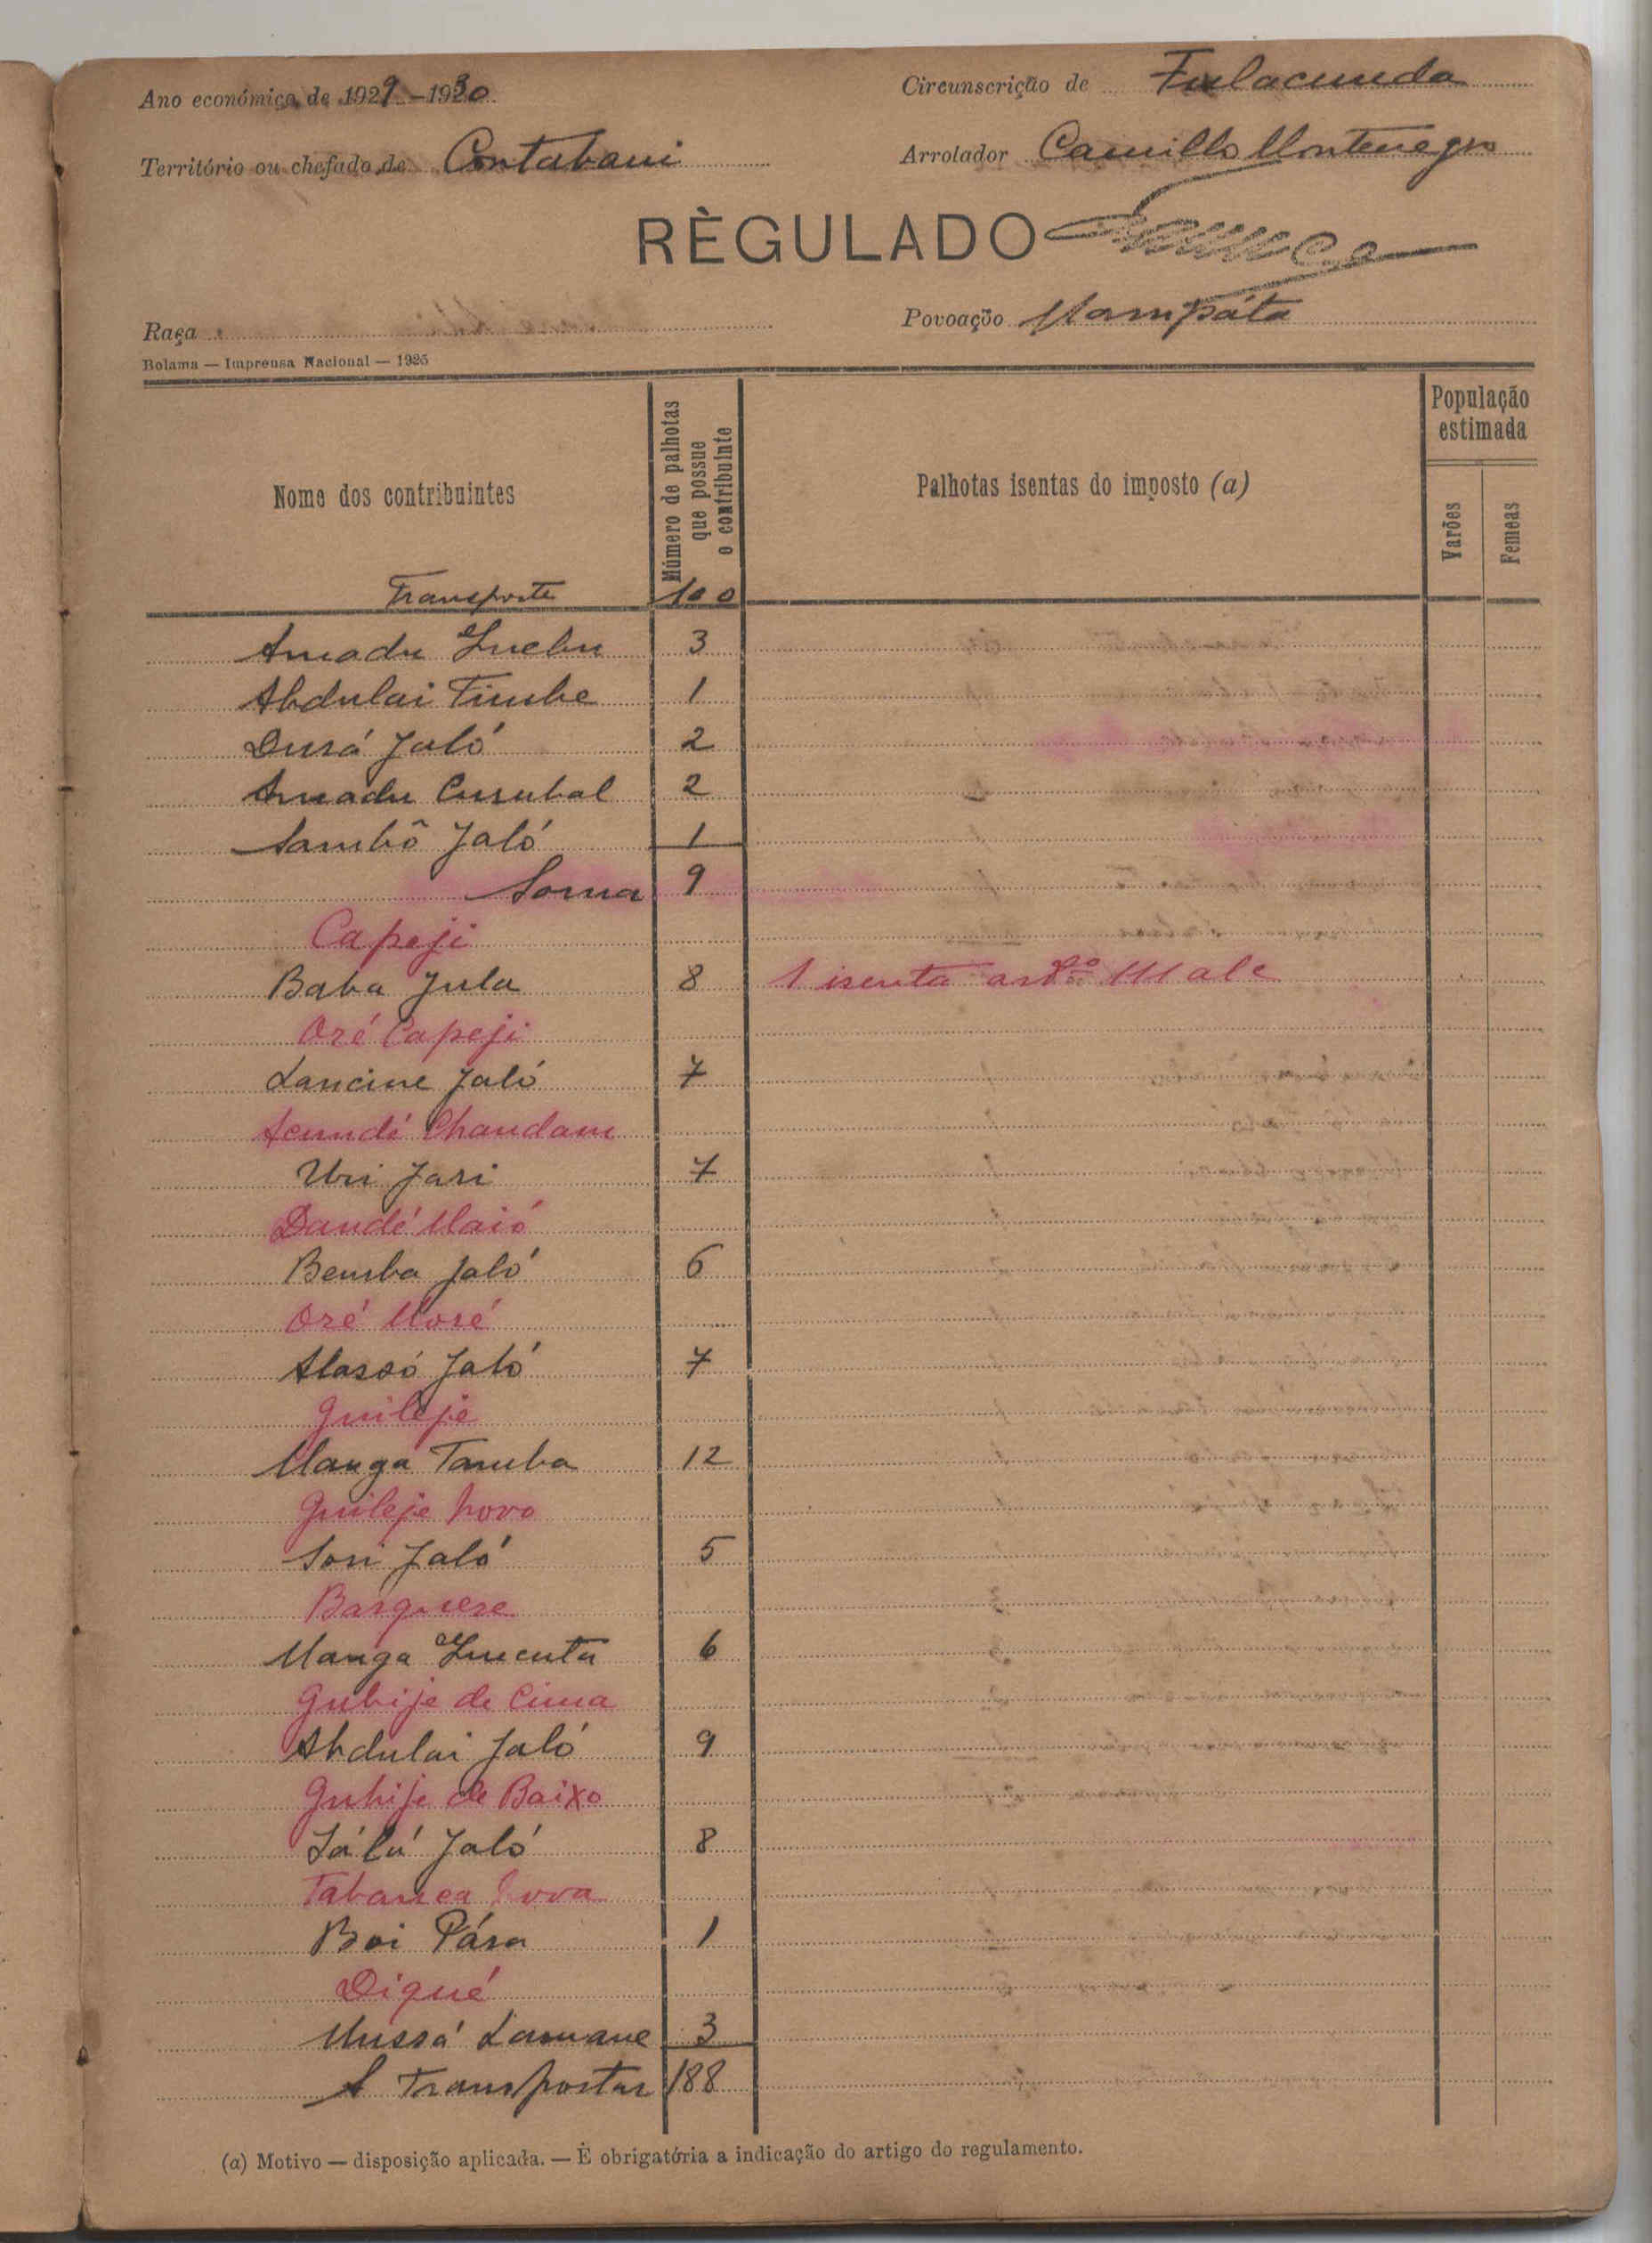 Ano económico de 1929-1930
Circunscrição de Fulacunda
Território ou chefado de Contabani
Arrolador Camillo Montenegro
RÈGULADO
Raça
Povoação Mampáta
Bolama — Imprensa Nacional — 1925
Nome dos contribuintes
Número de palhotas que possue o contribuinte
Palhotas isentas do imposto (a)
População estimada
Varões
Femeas
Transporte 100
Amadu 3
Abdulai Timbe 1
Durá Jaló 2
Amadu Curubal 2
Sambô Jaló 1
Soma 9
Capeji
Baba Jula 8 1 isenta Male
Oré Capeji
Lancine Jaló 7
Chandam
Uri Jari 7
Dandé Maió
Bemba Jaló 6
Oré Moré
Alassó Jaló 7
Guileje
Manga Tamba 12
Guileje novo
Sori Jaló 5
Barquere
Manga 6
Gubije de Cima
Abdulai Jaló 9
Gubije de Baixo
Sálú Jaló 8
Tabanca nova
Boi Pára 1
Diqué
Mussá Lamane 3
A Transportar 188
(a) Motivo — disposição aplicada. — É obrigatória a indicação do artigo do regulamento.